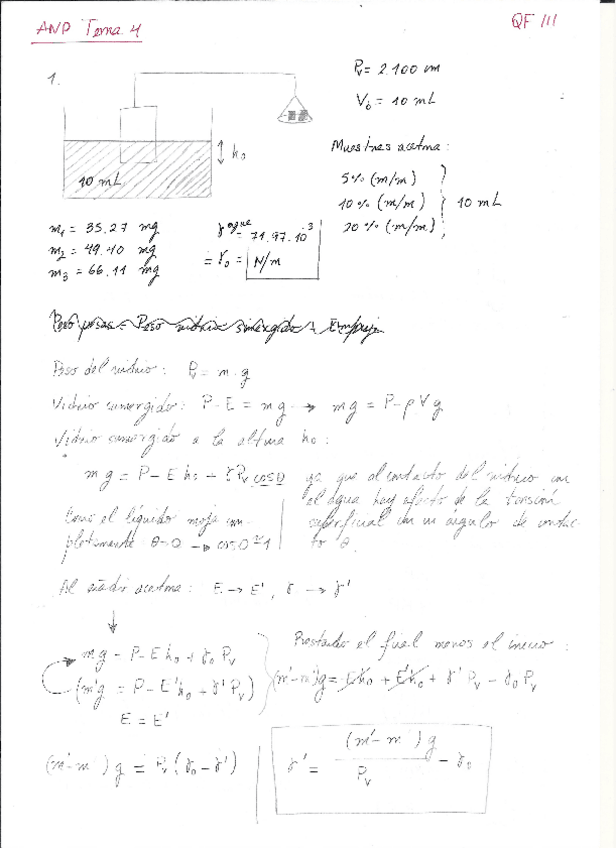 ANP Tema 4
QF III
1.
Pv = 2.100 cm
V₀ = 10 mL
h₀
10 mL
Muestras acetona:
5% (m/m)
10% (m/m)
20% (m/m)
10 mL
m₁ = 35.27 mg
m₂ = 49.40 mg
m₃ = 66.11 mg
γagua = 71.97·10⁻³
= γ₀ = N/m
Peso pesas = Peso vidrio sumergido + Empuje
Peso del vidrio: P = m·g
Vidrio sumergido: P - E = mg → mg = P - ρVg
Vidrio sumergido a la altura h₀:
mg = P - E h₀ + γPv cosθ
ya que al contacto del vidrio con
el agua hay efecto de la tensión
superficial con un ángulo de contac
to θ.
Como el líquido moja com-
pletamente θ=0 → cosθ=1
Al añadir acetona: E → E', γ → γ'
mg = P - E h₀ + γ₀ Pv
(m'g = P - E'h₀ + γ' Pv)
E = E'
Restando el final menos el inicio:
(m'-m)g = -Eh₀ + E'h₀ + γ' Pv - γ₀ Pv
(m'-m) g = Pv (γ₀ - γ')
γ' = (m'-m) g / Pv - γ₀